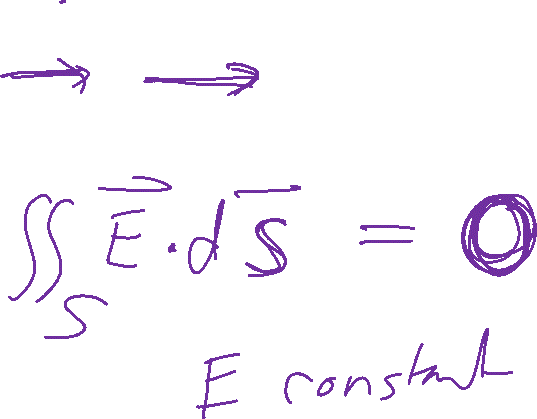 → →
∬_S E⃗ · dS⃗ = 0
E constant